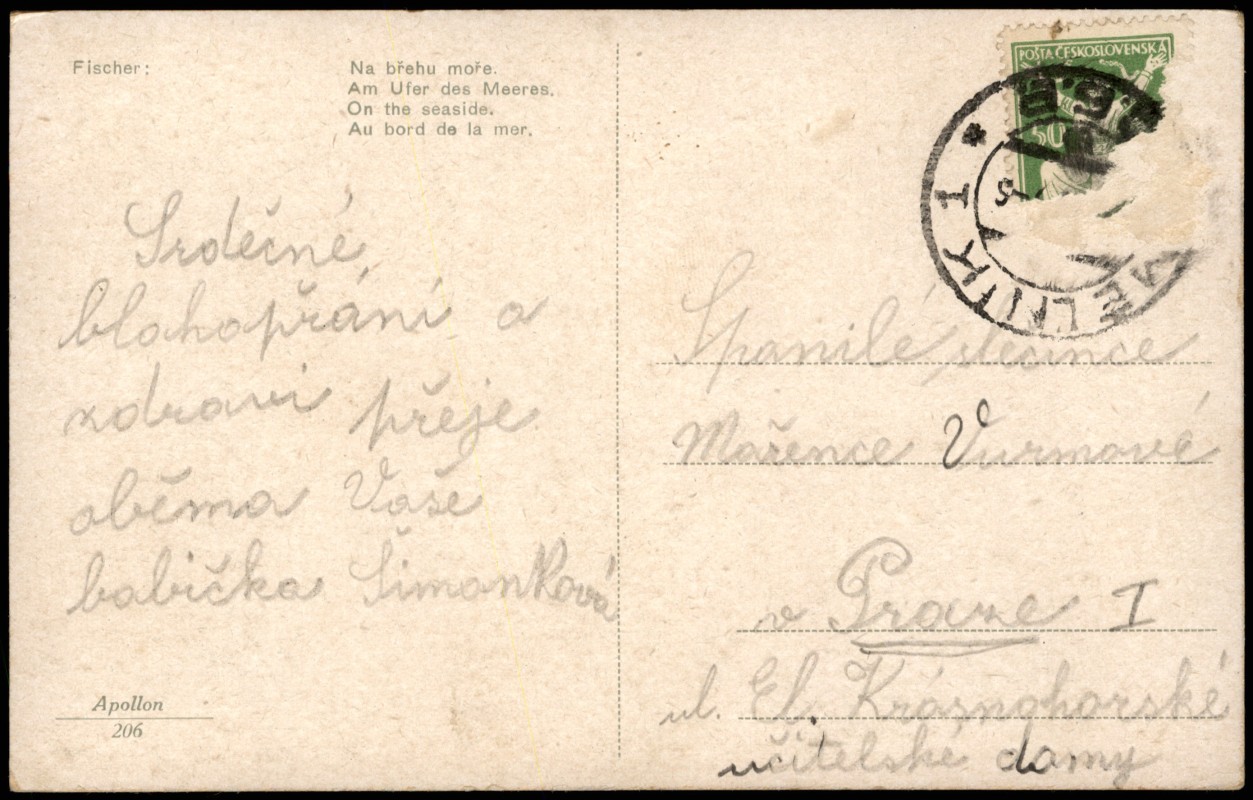 Fischer:
Na břehu moře.
Am Ufer des Meeres.
On the seaside.
Au bord de la mer.
POŠTA ČESKOSLOVENSKÁ
50
MĚLNÍK 1
Srdečné
blahopřání a
zdraví přeje
oběma Vaše
babička Šimonková
Spanilé slečince
Mařence Vurmové
v Praze I
ul. El. Krásnohorské
učitelské domy
Apollon
206